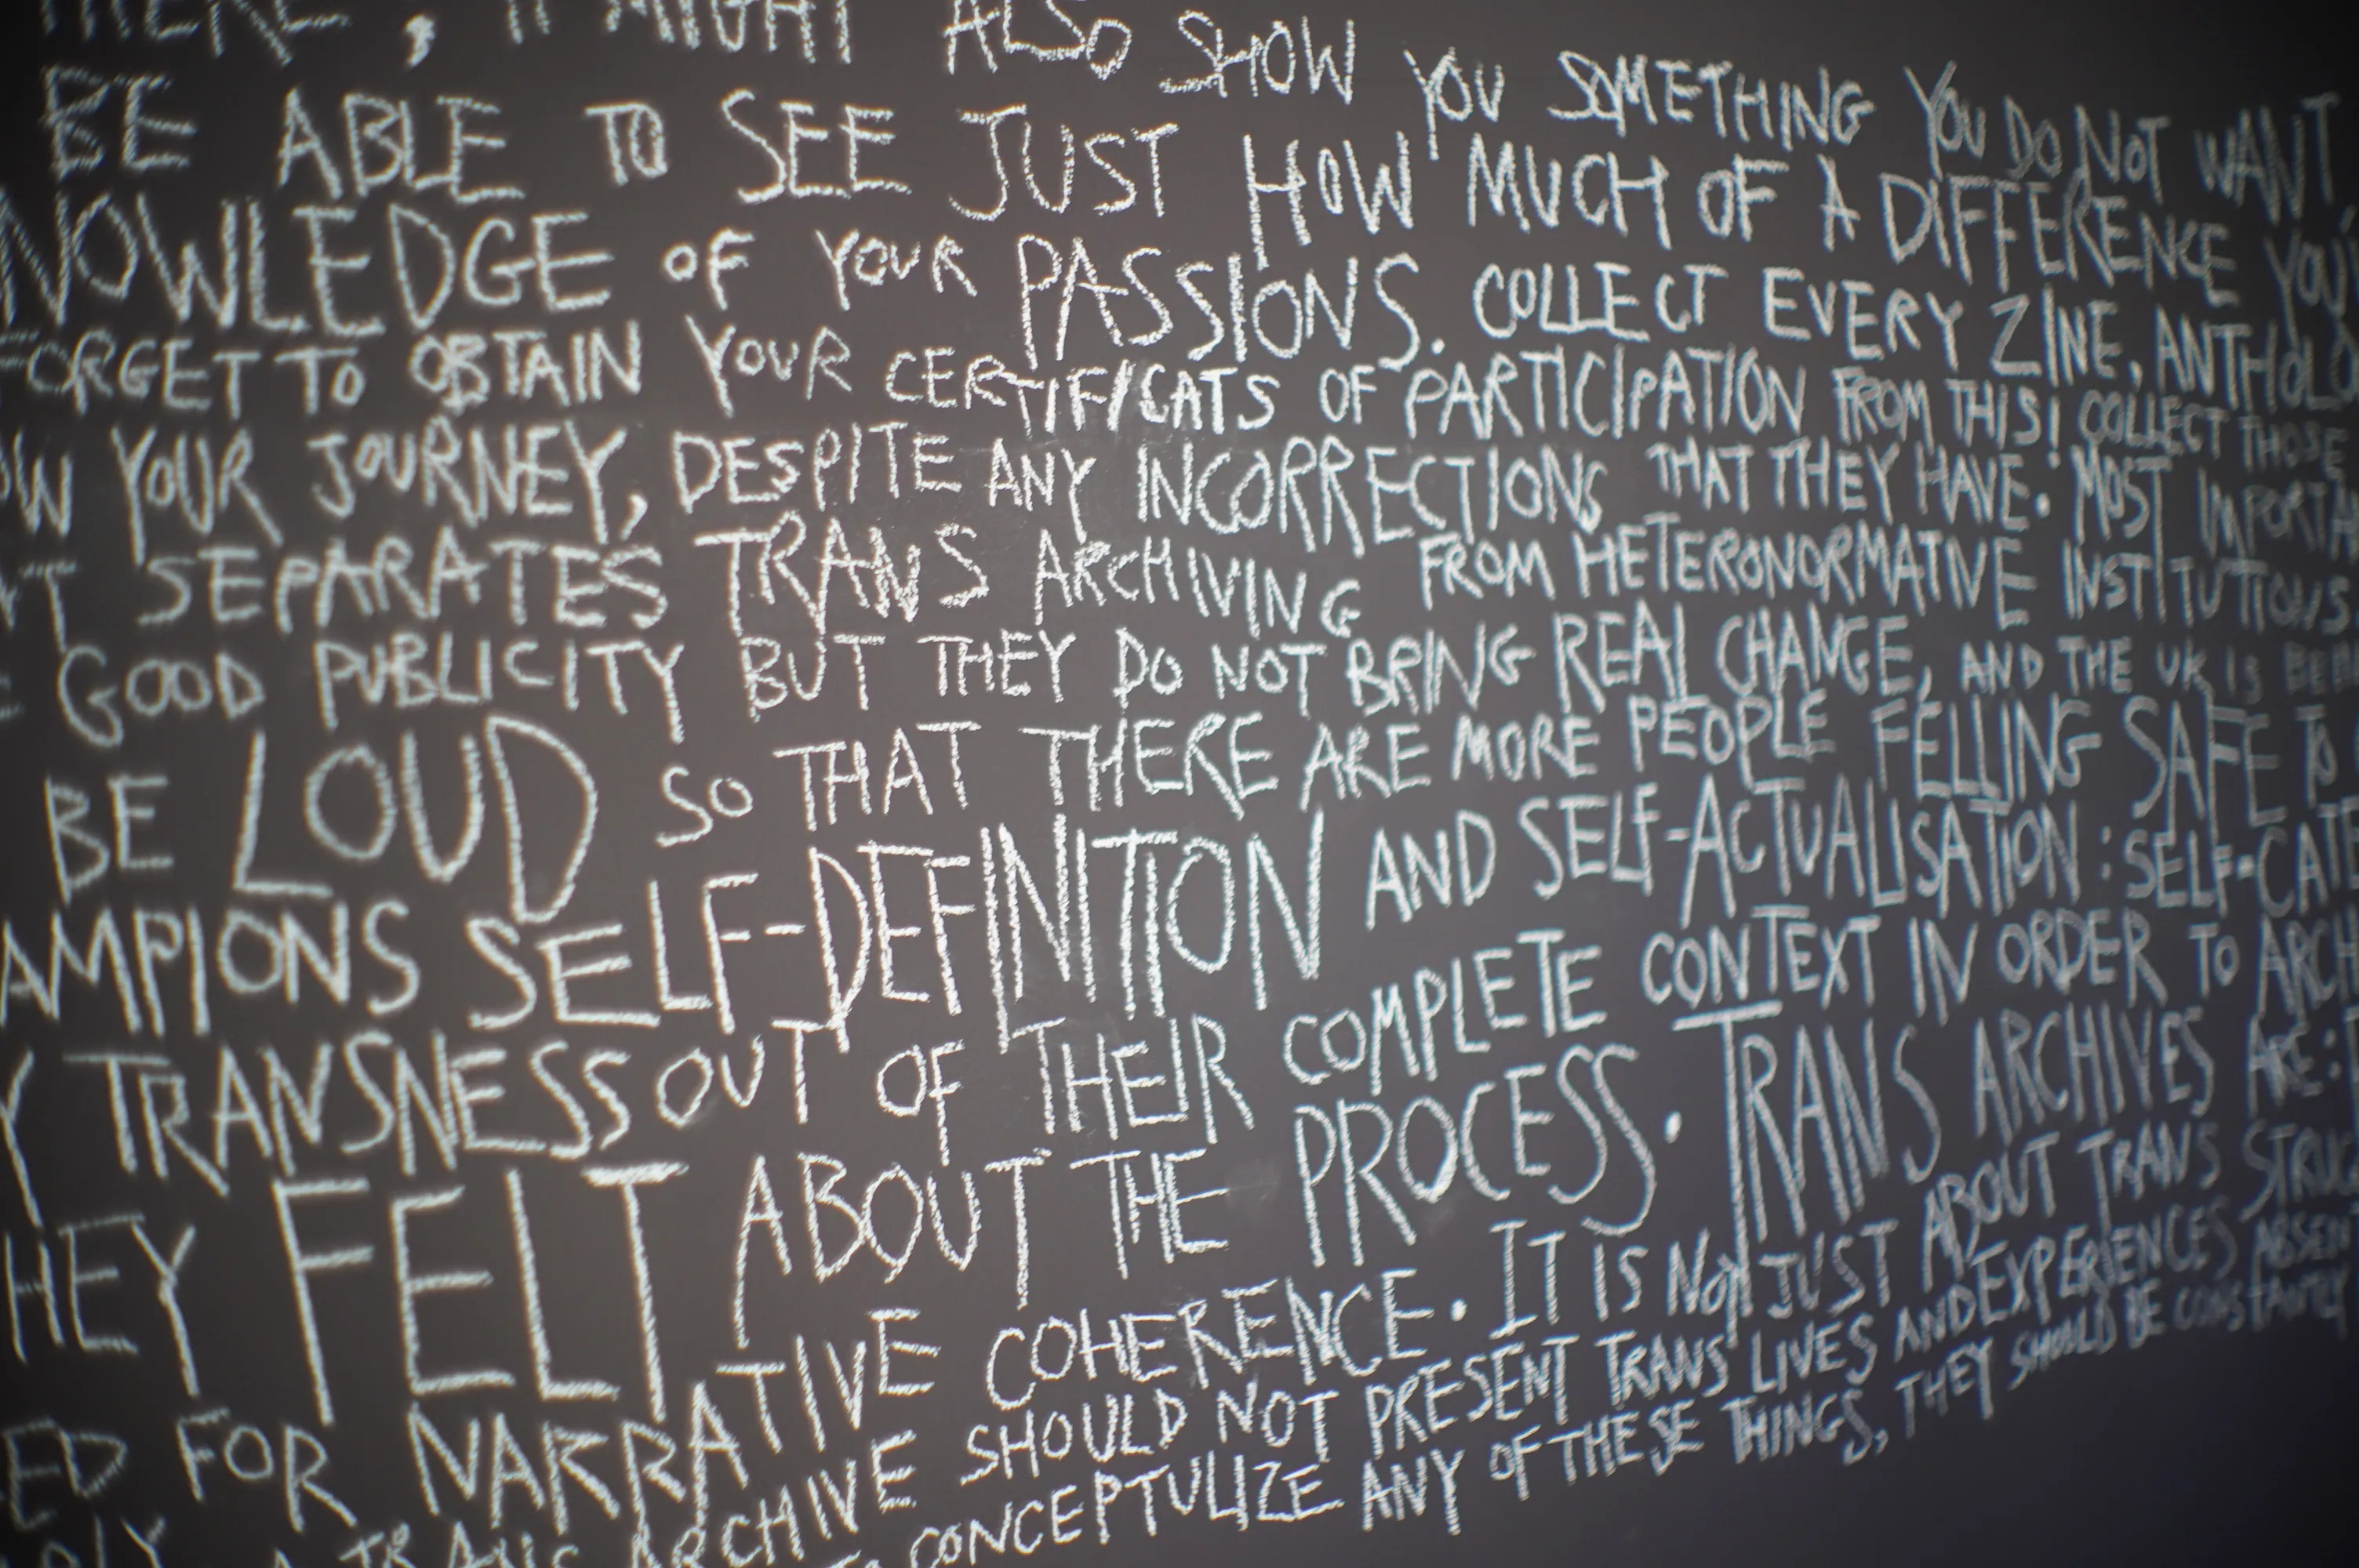 THERE, IT MIGHT ALSO SHOW YOU SOMETHING YOU DO NOT WANT,
BE ABLE TO SEE JUST HOW MUCH OF A DIFFERENCE YOU'
NOWLEDGE OF YOUR PASSIONS. COLLECT EVERY ZINE, ANTHOLO
FORGET TO OBTAIN YOUR CERTIFICATS OF PARTICIPATION FROM THIS! COLLECT THOSE
OW YOUR JOURNEY, DESPITE ANY INCORRECTIONS THAT THEY HAVE. MOST IMPORTA
T SEPARATES TRANS ARCHIVING FROM HETERONORMATIVE INSTITUTIONS.
E GOOD PUBLICITY BUT THEY DO NOT BRING REAL CHANGE, AND THE UK IS
BE LOUD SO THAT THERE ARE MORE PEOPLE FELLING SAFE TO
AMPIONS SELF-DEFINITION AND SELF-ACTUALISATION: SELF-CATE
Y TRANSNESS OUT OF THEIR COMPLETE CONTEXT IN ORDER TO ARCH
HEY FELT ABOUT THE PROCESS. TRANS ARCHIVES ARE:
ED FOR NARRATIVE COHERENCE. IT IS NOT JUST ABOUT TRANS STRUG
A TRANS ARCHIVE SHOULD NOT PRESENT TRANS LIVES AND EXPERIENCES ABSEN
TO CONCEPTULIZE ANY OF THESE THINGS, THEY SHOULD BE CONSTANTLY